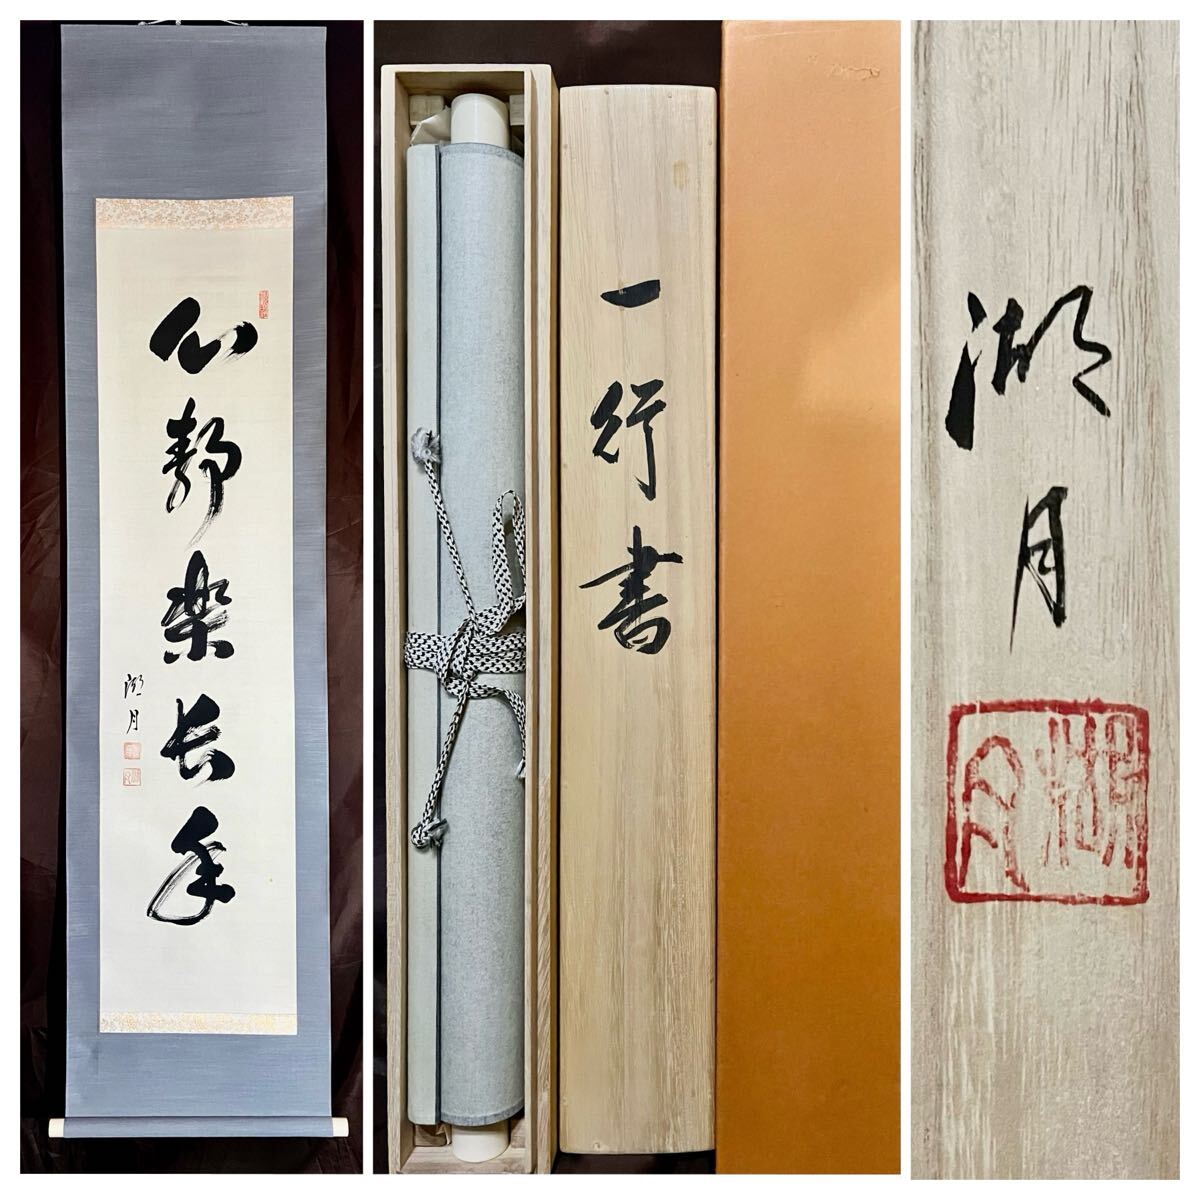 心静楽長年
湖月
一行書
湖月
湖月